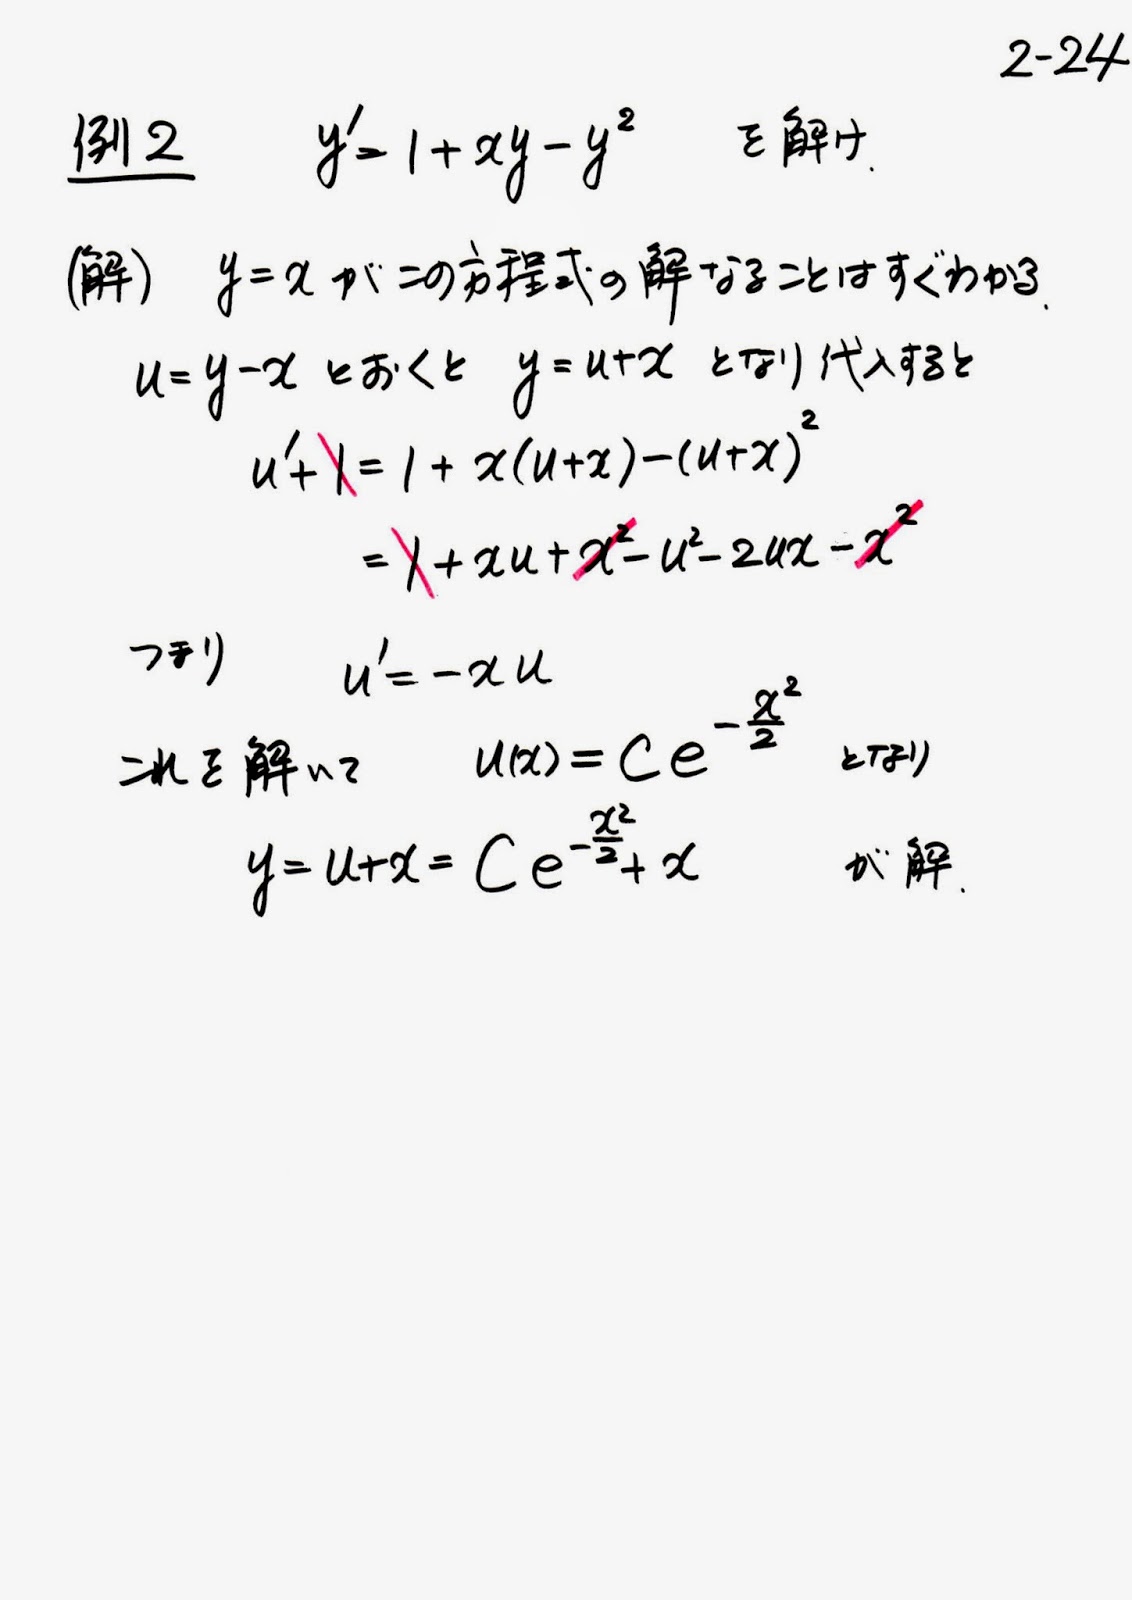 2-24
例2 y'=1+xy-y² を解け.
(解) y=x がこの方程式の解なることはすぐわかる.
u=y-x とおくと y=u+x となり代入すると
u'+1=1+x(u+x)-(u+x)²
=1+xu+x²-u²-2ux-x²
つまり u'=-xu
これを解いて u(x)=Ce^{-\frac{x²}{2}} となり
y=u+x=Ce^{-\frac{x²}{2}}+x が解.